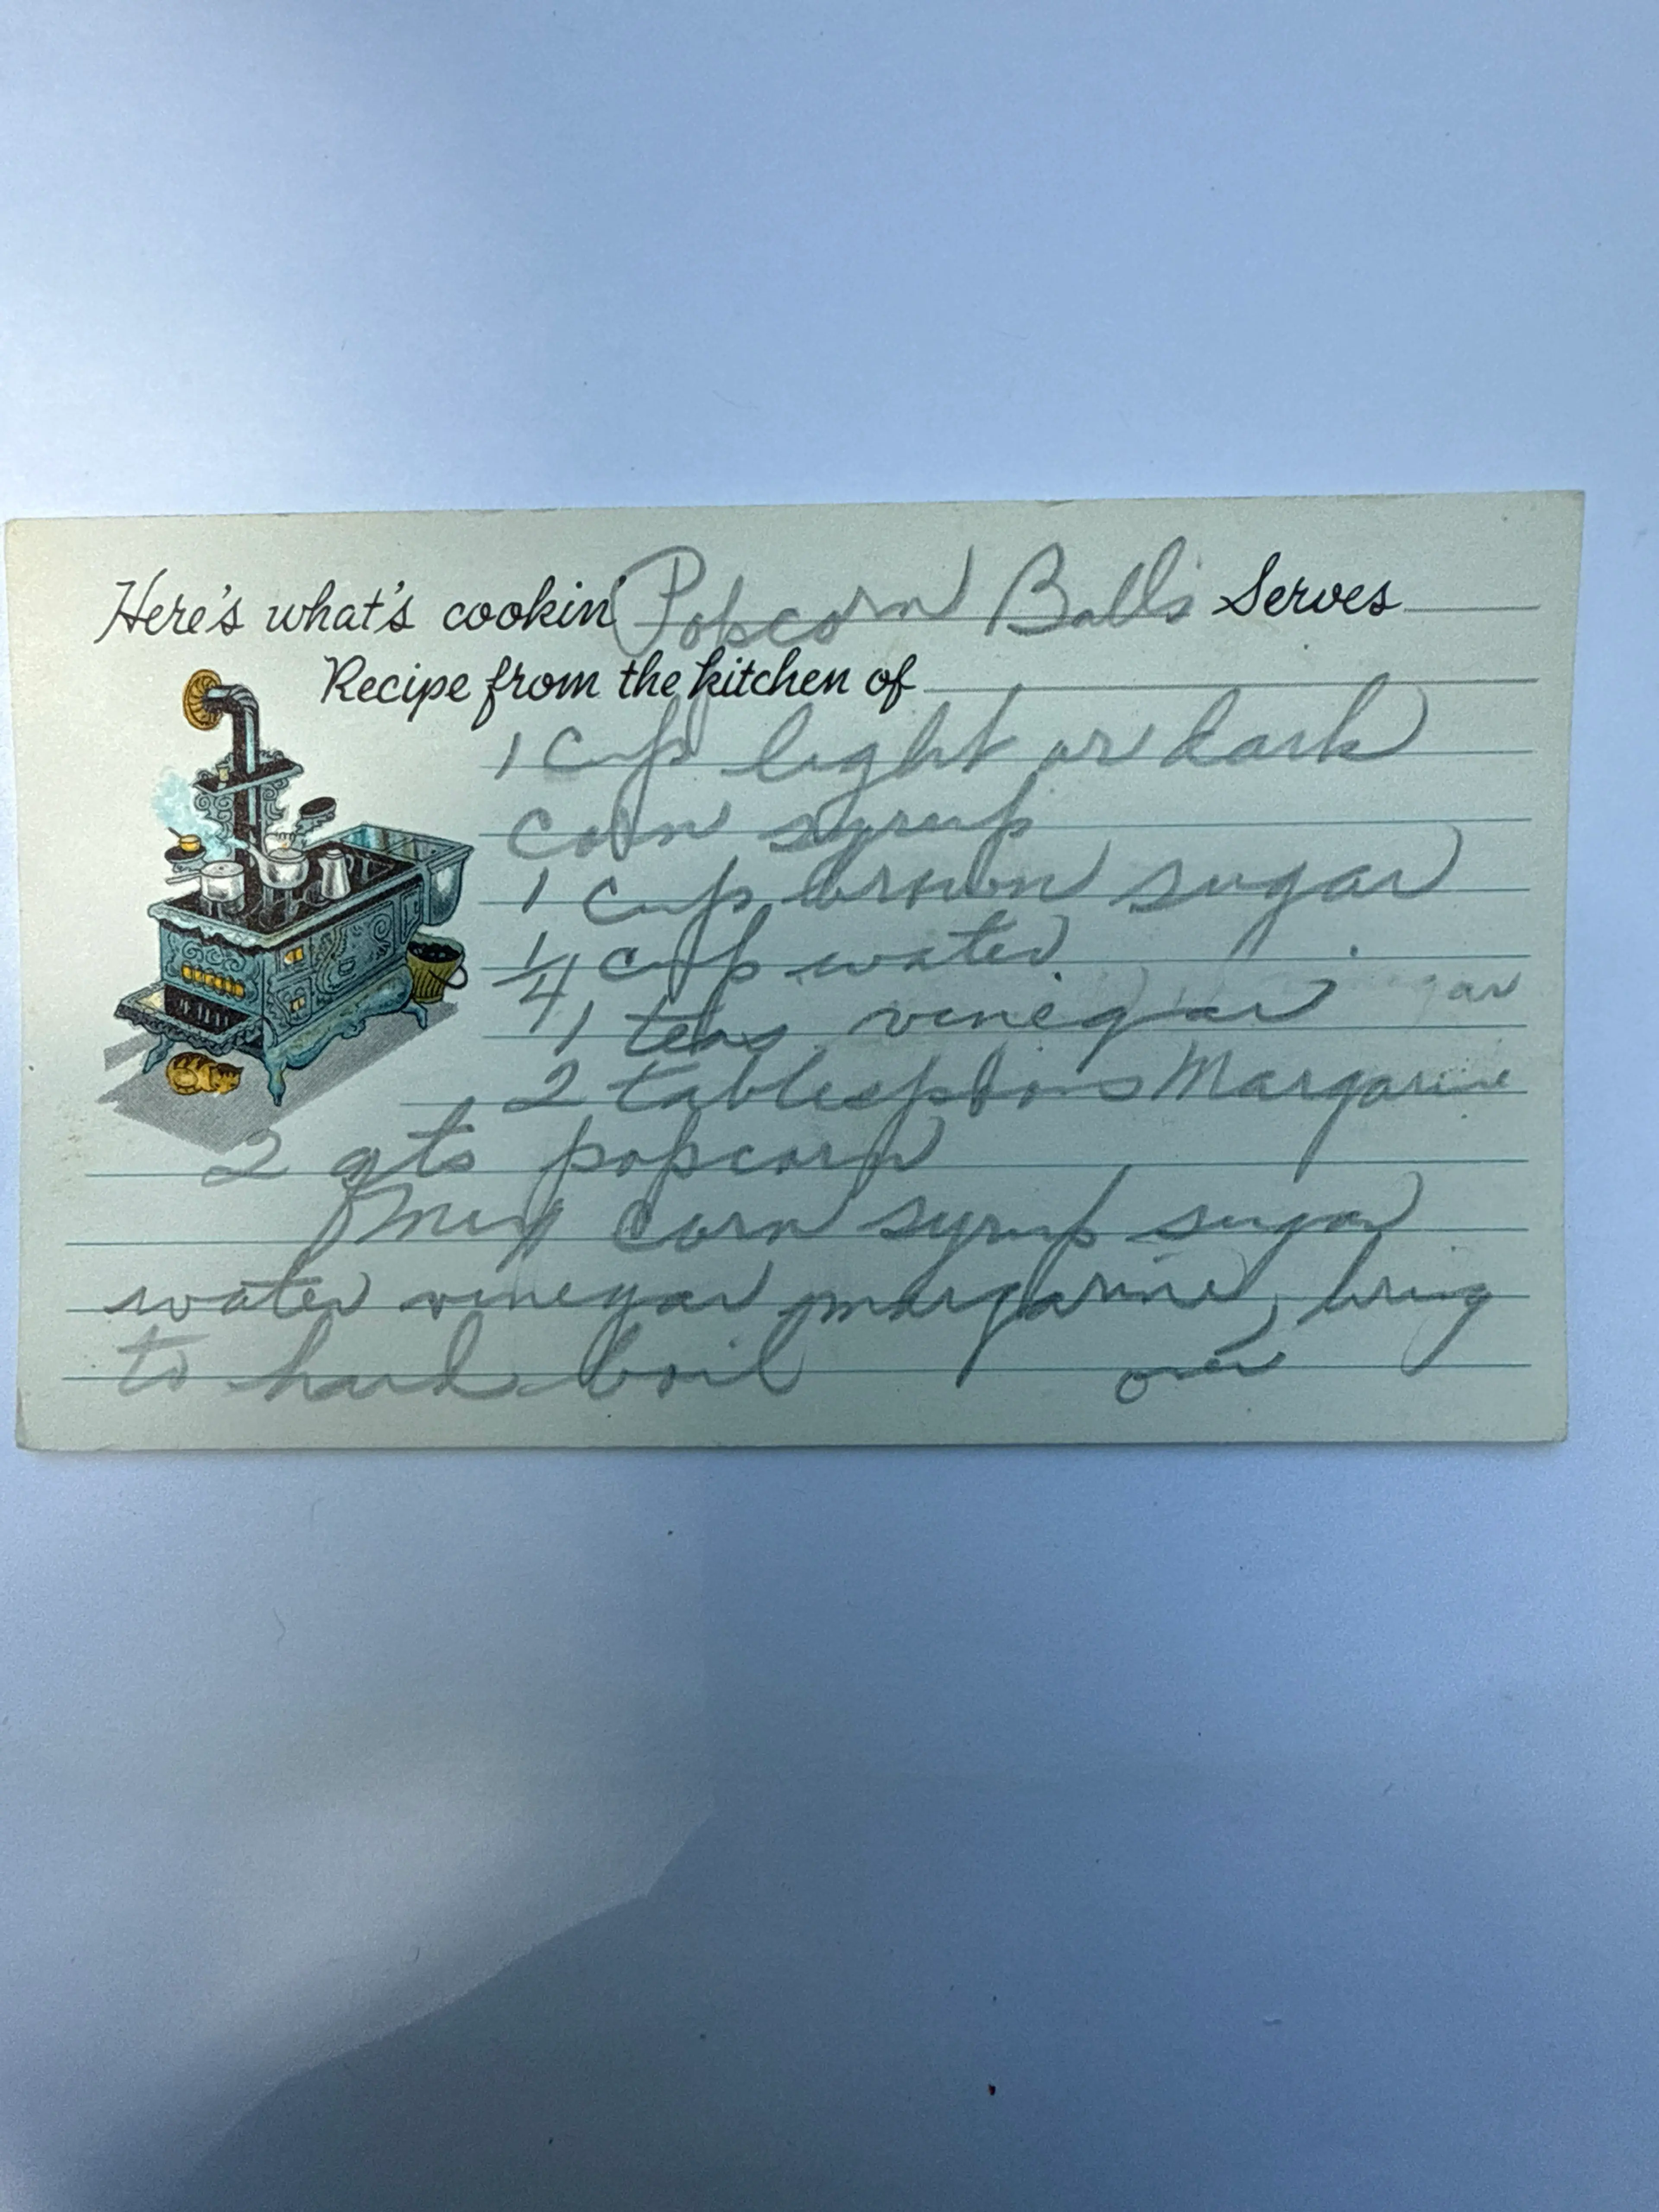 Here's what's cookin' Popcorn Balls Serves
Recipe from the kitchen of
1 cup light or dark
corn syrup
1 cup brown sugar
1/4 cup water
1 teas vinegar
2 tablespoons Margarine
2 qts popcorn
Mix corn syrup sugar
water vinegar margarine, bring
to hard boil over